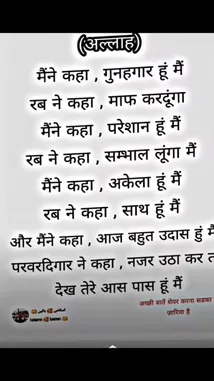 (अल्लाह)
मैंने कहा , गुनहगार हूं मैं
रब ने कहा , माफ करदूंगा
मैंने कहा , परेशान हूं मैं
रब ने कहा , सम्भाल लूंगा मैं
मैंने कहा , अकेला हूं मैं
रब ने कहा , साथ हूं मैं
और मैंने कहा , आज बहुत उदास हुं मैं
परवरदिगार ने कहा , नजर उठा कर त
देख तेरे आस पास हूं मैं
अच्छी बातें शेयर करना सदका
ज़ारिया है